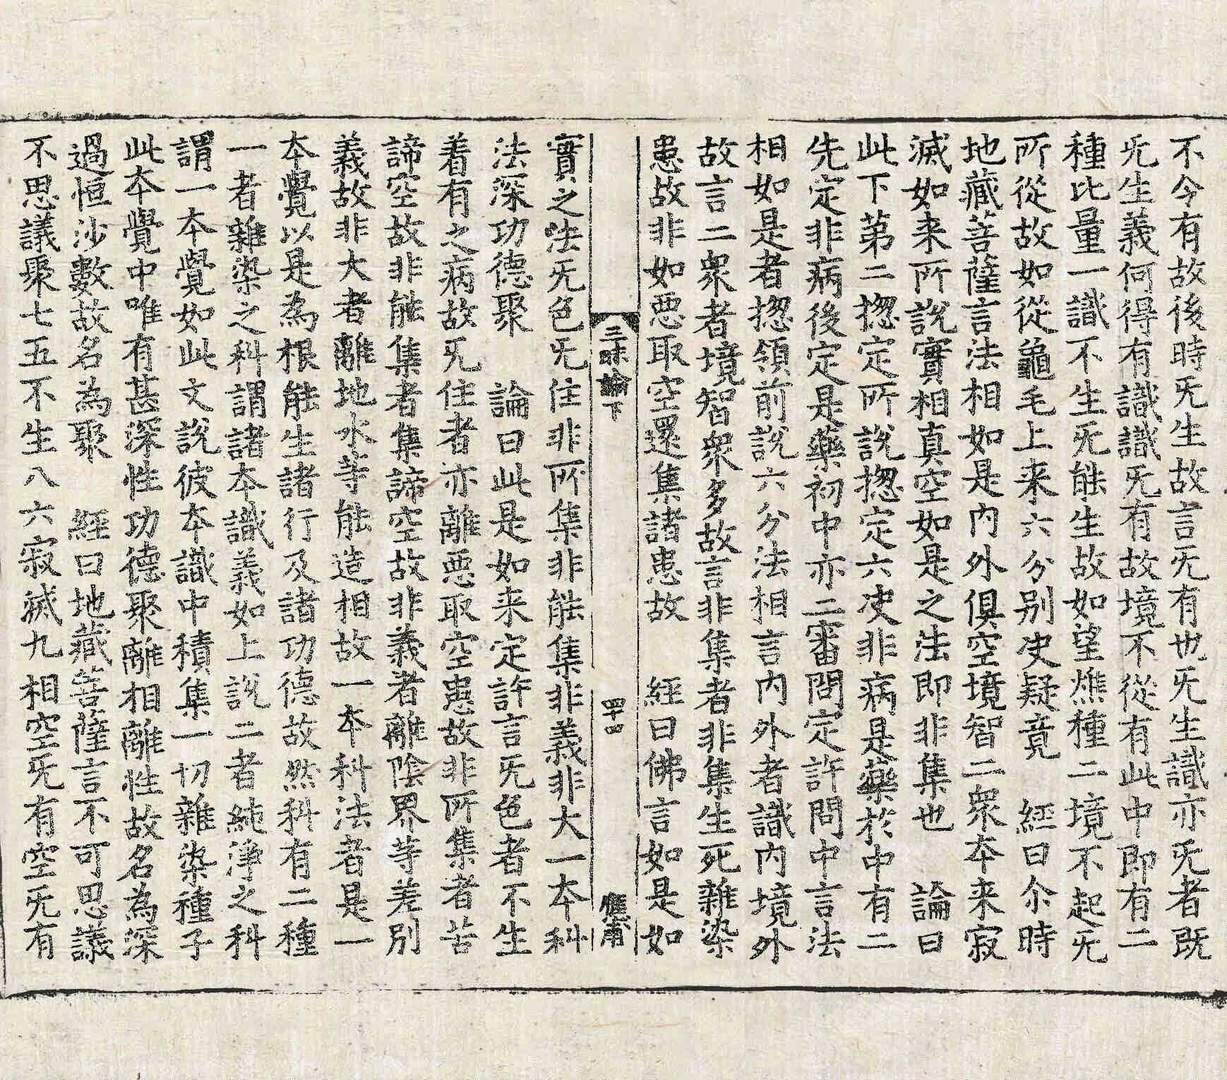 不今有故後時旡生故言旡有也旡生識亦旡者既
旡生義何得有識識旡有故境不從有此中即有二
種比量一識不生旡能生故如望燋種二境不起旡
所從故如從龜毛上来六分别决疑竟　經曰尒時
地藏菩薩言法相如是内外俱空境智二衆本来寂
滅如来所說實相真空如是之法即非集也　論曰
此下第二揔定所說揔定六决非病是藥於中有二
先定非病後定是藥初中亦二審問定許問中言法
相如是者揔領前說六分法相言内外者識内境外
故言二衆者境智衆多故言非集者非集生死雜染
患故非如惡取空還集諸患故　經曰佛言如是如
三昧論下　四十四　
實之法旡色旡住非所集非能集非義非大一本科
法深功德聚　論曰此是如来定許言旡色者不生
着有之病故旡住者亦離惡取空患故非所集者苦
諦空故非能集者集諦空故非義者離陰界等差别
義故非大者離地水等能造相故一本科法者是一
本覺以是為根能生諸行及諸功德故然科有二種
一者雜染之科謂諸本識義如上說二者純淨之科
謂一本覺如此文說彼本識中積集一切雜染種子
此本覺中唯有甚深性功德聚離相離性故名為深
過恒沙數故名為聚　經曰地藏菩薩言不可思議
不思議聚七五不生八六寂滅九相空旡有空旡有